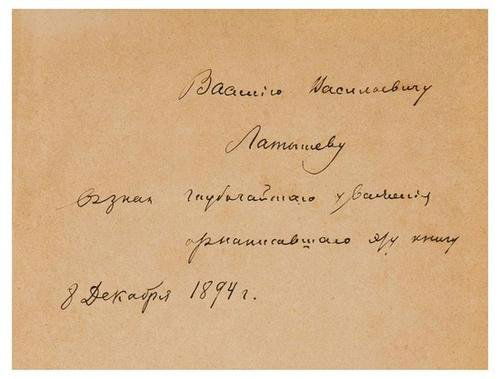 Василію Васильевичу
Латышеву
въ знак глубочайшаго уваженія
написавшаго эту книгу
8 Декабря 1894 г.